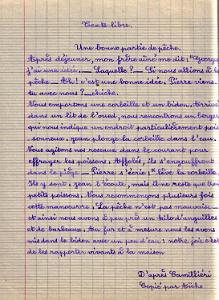 Texte libre.
Une bonne partie de pêche.
Après déjeuner, mon frère aîné me dit : "Georges
j'ai une idée. — Laquelle ? — Si nous allions à la
pêche — Ah ! c'est une bonne idée, Pierre viens-
tu avec nous ? — chiche.
Nous emportons une corbeille et un bidon. Arrivés
dans un lit de l'oued, nous rencontrons un berger
qui nous indique un endroit particulièrement pois-
sonneux,, je plonge la corbeille dans l'eau.
Nous agitons nos roseaux dans le courant pour
effrayer les poissons. Affolés, ils s'engouffrent
dans le piège — Pierre s'écrie : "lève la corbeille.
Ils y sont, Jean l'écoute, mais il ne reste que trois
petits poissons. Nous recommençons plusieurs fois
cette manœuvre : La pêche n'est pas mauvaise
et ainsi nous avons à peu près un kilo d'anguilles
et de barbeaux. Au fur et à mesure nous les avons
mis dans le bidon avec un peu d'eau : notre joie c'est
de les rapporter vivants à la maison
D'après Camilliéri
Copié par